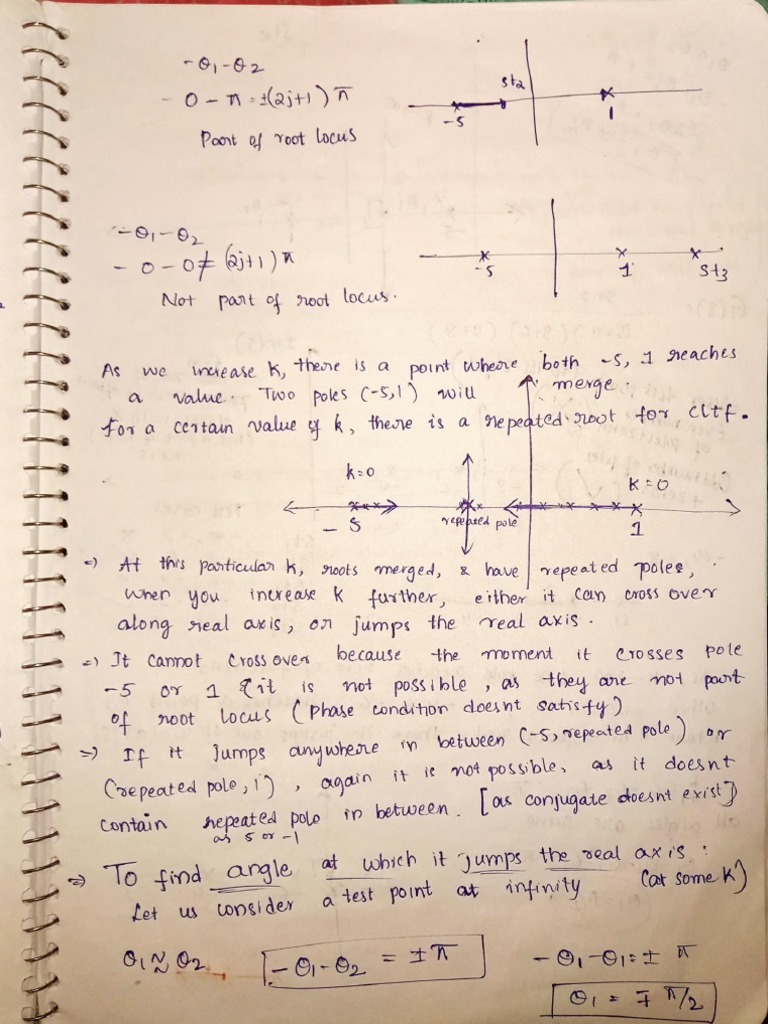 -θ₁-θ₂
- 0 - π = ±(2j+1) π
Part of root locus
st₂
-5
1
-θ₁-θ₂
- 0 - 0 ≠ (2j+1) π
Not part of root locus.
-5
1
st₃
As we increase k, there is a point where both -5, 1 reaches
a value. Two poles (-5,1) will merge.
for a certain value of k, there is a repeated root for cltf.
k=0
k=0
-5
repeated pole
1
=) At this particular k, roots merged, & have repeated poles,
when you increase k further, either it can cross over
along real axis, or jumps the real axis.
=) It cannot cross over because the moment it crosses pole
-5 or 1 {it is not possible, as they are not part
of root locus (phase condition doesnt satisfy)
=) If it jumps anywhere in between (-5, repeated pole) or
(repeated pole, 1), again it is not possible, as it doesnt
contain repeated pole in between. [as conjugate doesnt exist]
as 5 or -1
=) To find angle at which it jumps the real axis :
Let us consider a test point at infinity (at some k)
θ₁ ≈ θ₂
-θ₁-θ₂ = ±π
-θ₁-θ₁ = ± π
θ₁ = ∓ π/2